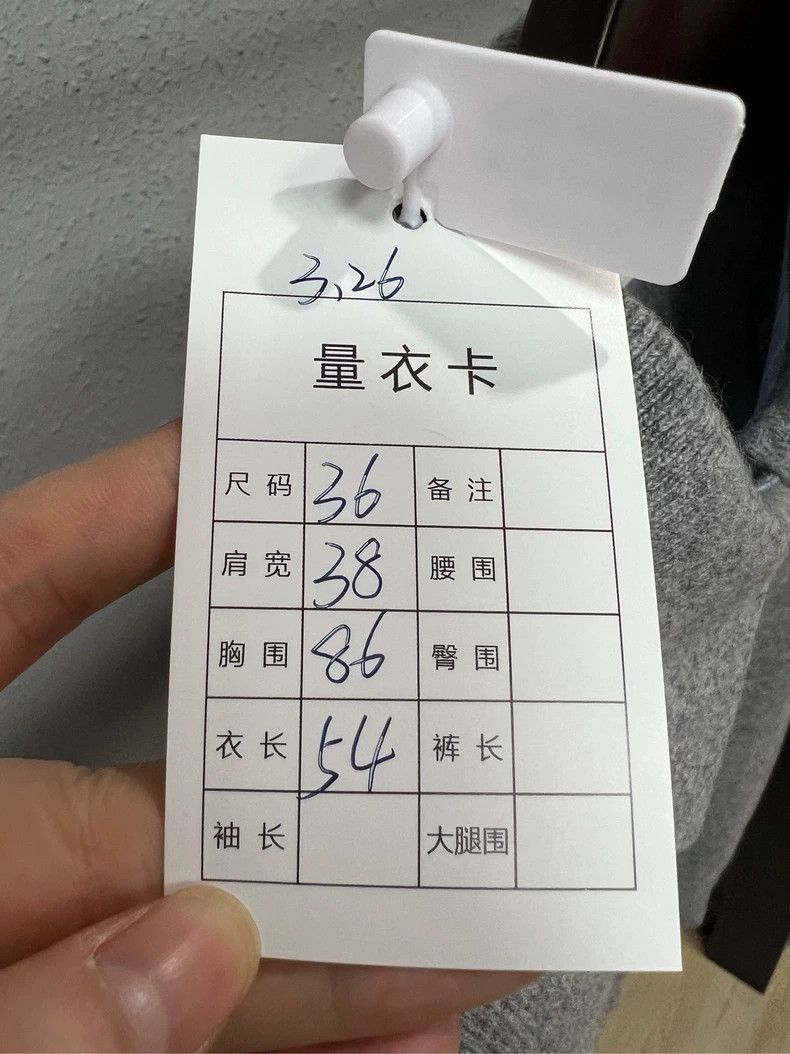 3.26
量衣卡
尺码 36 备注
肩宽 38 腰围
胸围 86 臀围
衣长 54 裤长
袖长 大腿围